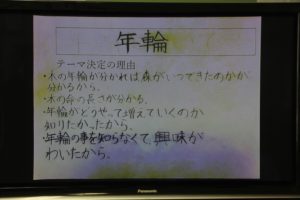 年輪
テーマ決定の理由
・木の年輪が分かれば森がいつできたのかが
分かるから。
・木の命の長さが分かる。
・年輪がどうやって増えていくのか
知りたかったから。
・年輪の事を知らなくて、興味が
わいたから。
Panasonic